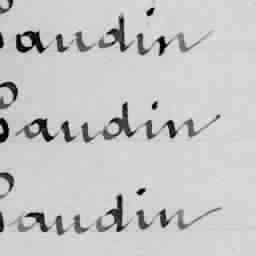 Gaudin
Gaudin
Gaudin